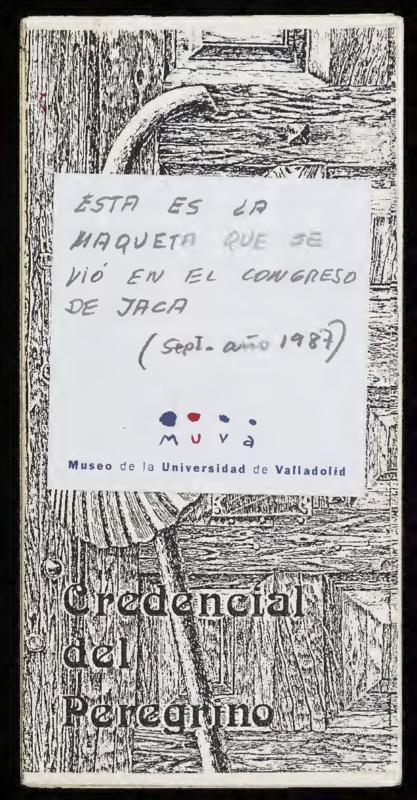 ESTA ES LA
MAQUETA QUE SE
VIÓ EN EL CONGRESO
DE JACA
(Sept. año 1987)
muva
Museo de la Universidad de Valladolid
Credencial
del
Peregrino